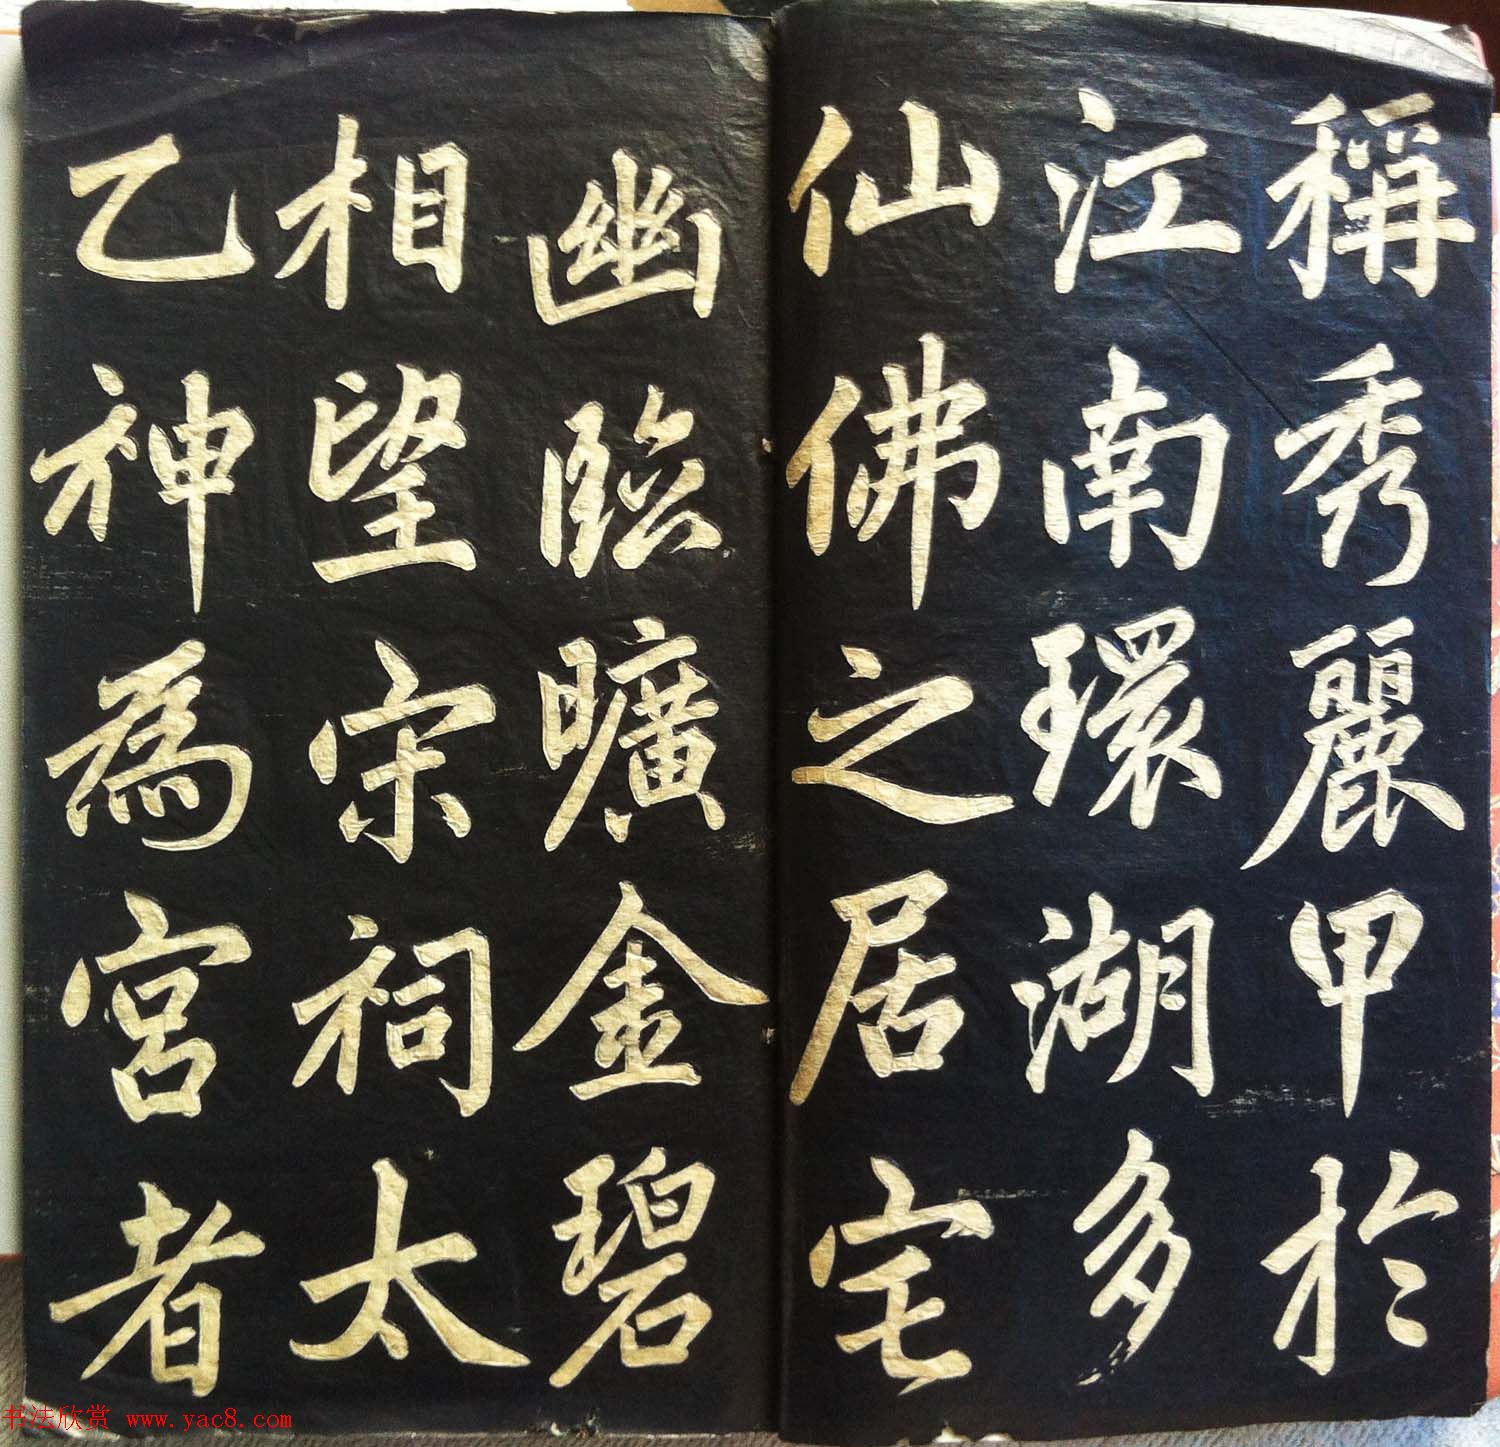 稱秀麗甲於
江南環湖多
仙佛之居宅
幽臨曠金碧
相望宗祠太
乙神為宮者
书法欣赏 www.yac8.com